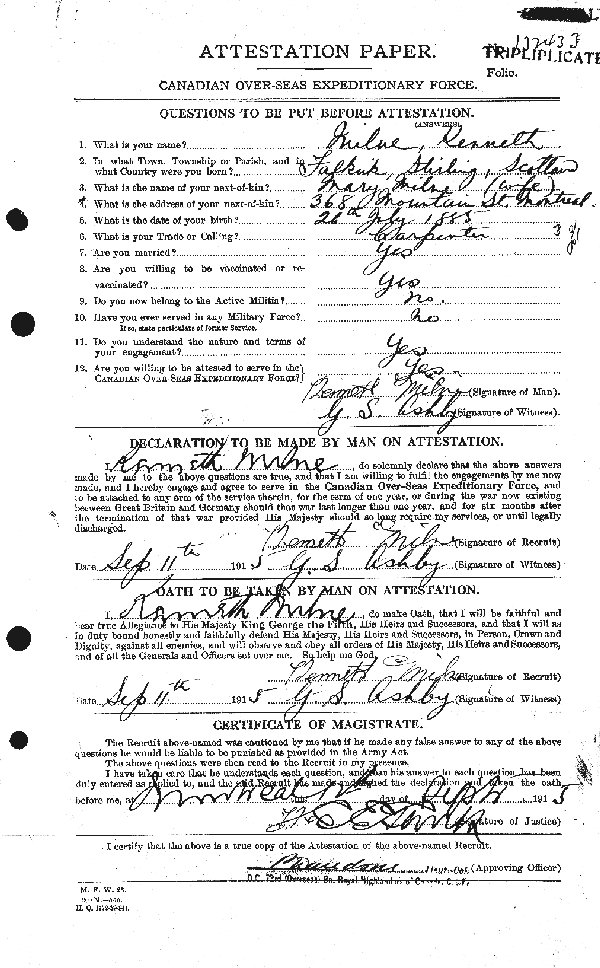 132433
ATTESTATION PAPER.
TRIPLICATE
Folio.
CANADIAN OVER-SEAS EXPEDITIONARY FORCE.
QUESTIONS TO BE PUT BEFORE ATTESTATION.
(ANSWERS).
1. What is your name? Milne, Kenneth
2. In what Town, Township or Parish, and in
what Country were you born? Falkirk, Stirling, Scotland
3. What is the name of your next-of-kin? Mary Milne (wife)
4. What is the address of your next-of-kin? 368 Mountain St. Montreal.
5. What is the date of your birth? 26th July 1885
6. What is your Trade or Calling? Carpenter
7. Are you married? Yes
8. Are you willing to be vaccinated or re-
vaccinated? Yes
9. Do you now belong to the Active Militia? No.
10. Have you ever served in any Military Force? No
If so, state particulars of former Service.
11. Do you understand the nature and terms of
your engagement? Yes
12. Are you willing to be attested to serve in the
CANADIAN OVER-SEAS EXPEDITIONARY FORCE? Yes
Kenneth Milne (Signature of Man).
G. S. Ashby (Signature of Witness).
DECLARATION TO BE MADE BY MAN ON ATTESTATION.
I, Kenneth Milne, do solemnly declare that the above answers
made by me to the above questions are true, and that I am willing to fulfil the engagements by me now
made, and I hereby engage and agree to serve in the Canadian Over-Seas Expeditionary Force, and
to be attached to any arm of the service therein, for the term of one year, or during the war now existing
between Great Britain and Germany should that war last longer than one year, and for six months after
the termination of that war provided His Majesty should so long require my services, or until legally
discharged.
Kenneth Milne (Signature of Recruit)
Date Sep 11th 1915 G. S. Ashby (Signature of Witness)
OATH TO BE TAKEN BY MAN ON ATTESTATION.
I, Kenneth Milne, do make Oath, that I will be faithful and
bear true Allegiance to His Majesty King George the Fifth, His Heirs and Successors, and that I will as
in duty bound honestly and faithfully defend His Majesty, His Heirs and Successors, in Person, Crown and
Dignity, against all enemies, and will observe and obey all orders of His Majesty, His Heirs and Successors,
and of all the Generals and Officers set over me. So help me God.
Kenneth Milne (Signature of Recruit)
Date Sep 11th 1915 G. S. Ashby (Signature of Witness)
CERTIFICATE OF MAGISTRATE.
The Recruit above-named was cautioned by me that if he made any false answer to any of the above
questions he would be liable to be punished as provided in the Army Act.
The above questions were then read to the Recruit in my presence.
I have taken care that he understands each question, and that his answer to each question has been
duly entered as replied to, and the said Recruit has made and signed the declaration and taken the oath
before me, at Montreal this day of Sept 1915
(Signature of Justice)
I certify that the above is a true copy of the Attestation of the above-named Recruit.
Lieut-Col. (Approving Officer)
O.C. 73rd Overseas Bn. Royal Highlanders of Canada, C.E.F.
M. F. W. 23.
H. Q.